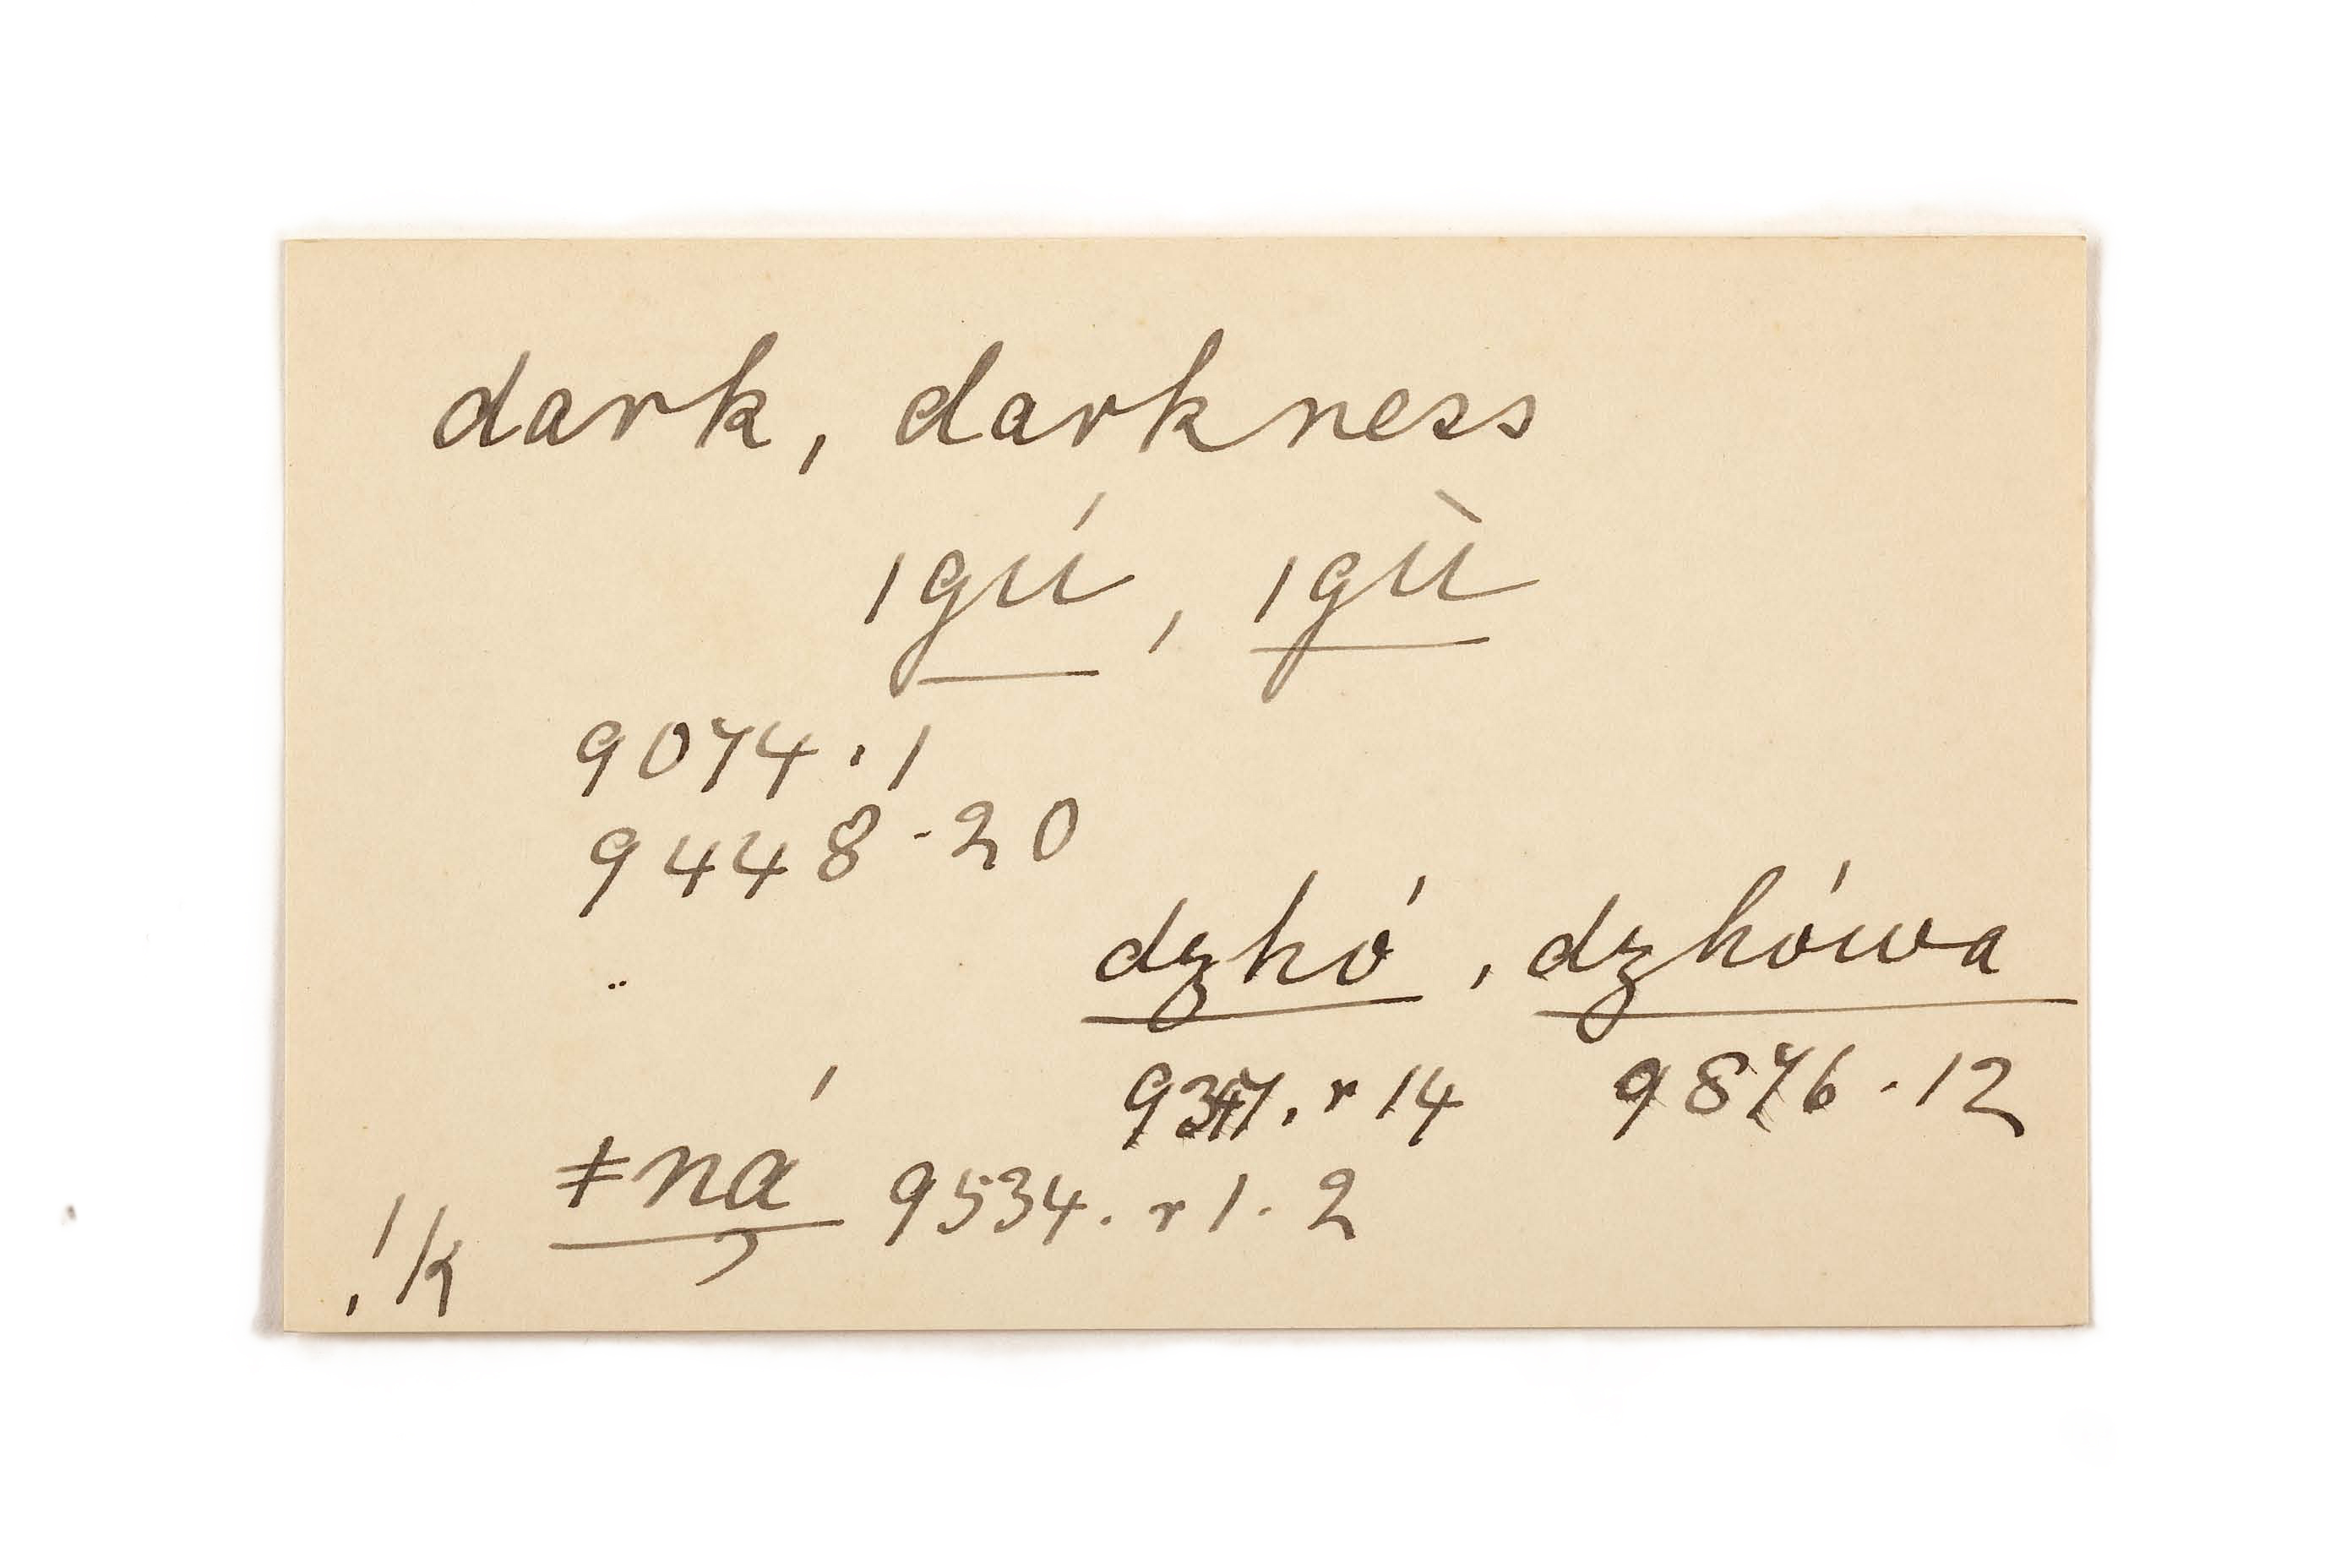 dark, darkness
ǀgú, ǀgù
9074.1
9448-20
dzhó, dzhówa
r 14 9876.12
ǂná̦ 9534. r 1. 2
!k